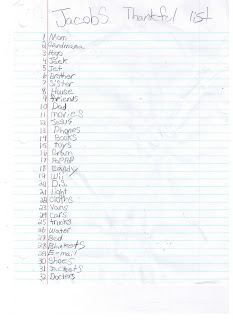 Jacobs Thankful list
1 Mom
2 Grandmama
3 Pogo
4 Jack
5 Jet
6 Brother
7 Sister
8 House
9 friends
10 Dad
11 movies
12 Jesus
13 Phones
14 Books
15 Toys
16
17 PoPPoP
18
19 Wii
20 D.S.
21 light
22 Cloths
23 Vans
24 Cars
25 trucks
26 Water
27 Bed
28 Blankets
29 E-mail
30 Shoes
31 Jackets
32 Doctors